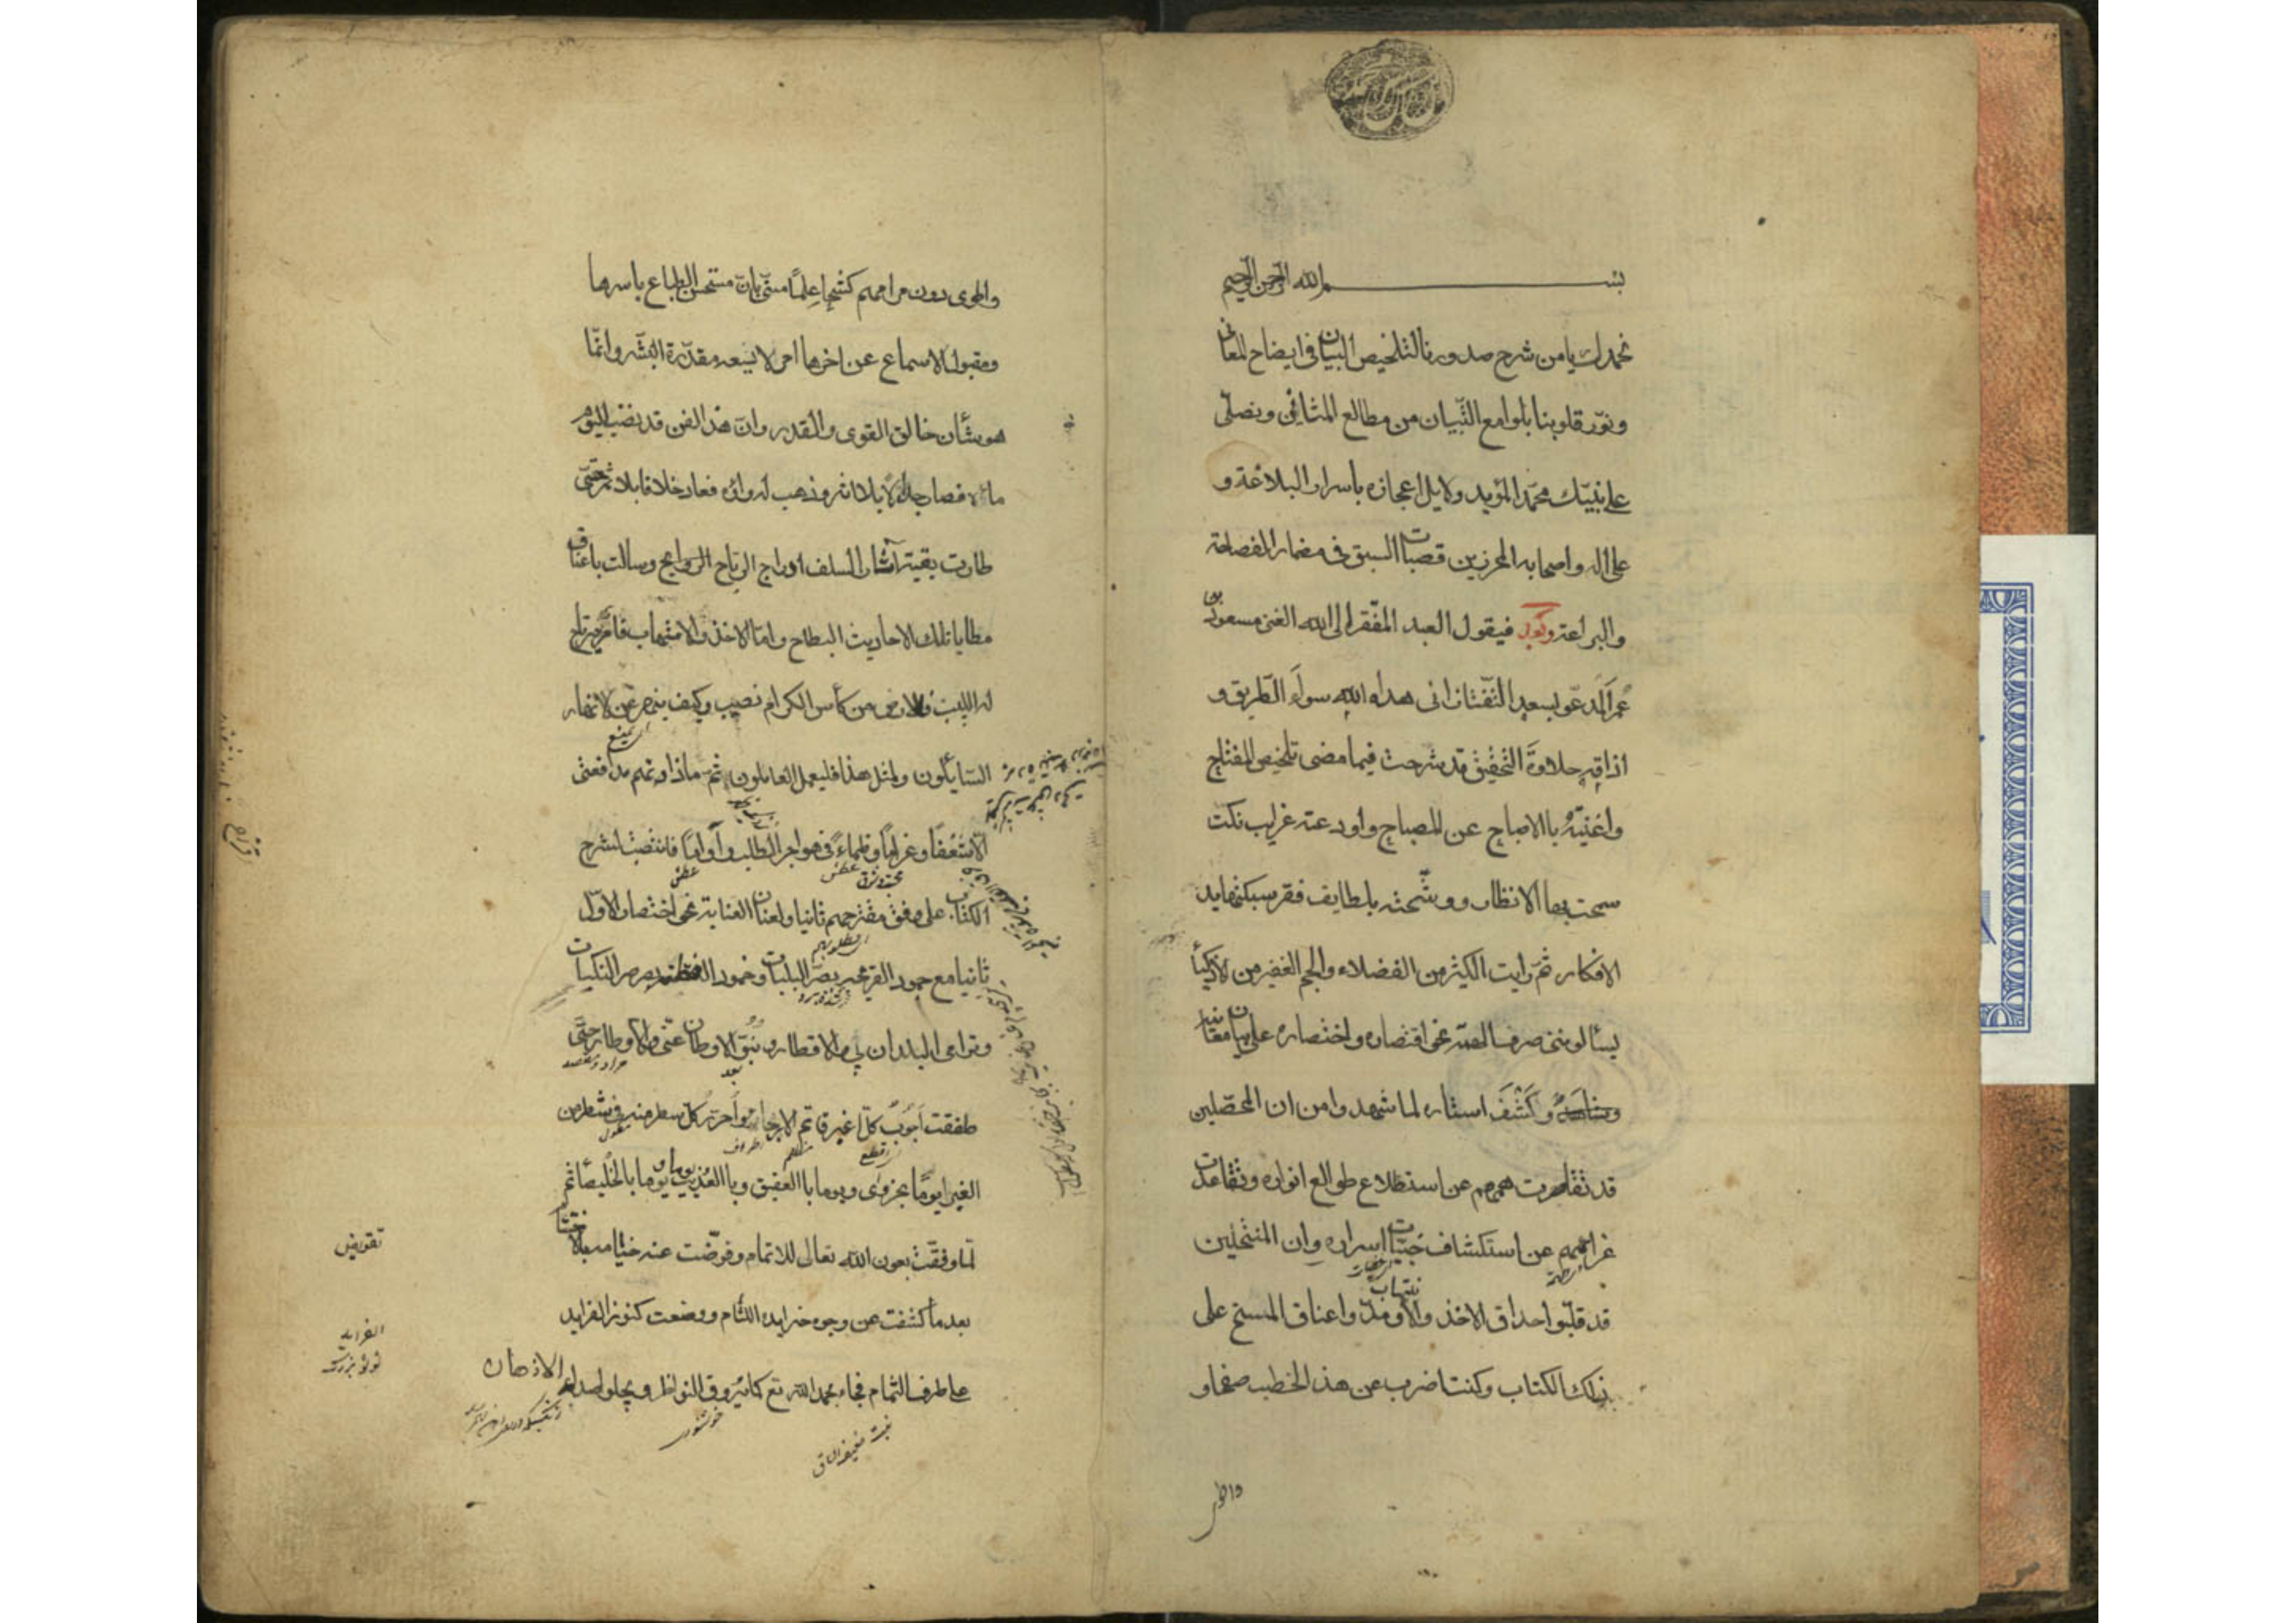 بسم الله الرحمن الرحيم
نحمدك يا من شرح صدورنا لتلخيص البيان في ايضاح المعاني
ونوّر قلوبنا بلوامع التّبيان من مطالع المثاني ونصلّي
على نبيّك محمّد المؤيد دلايل اعجازه باسرار البلاغة و
على اله واصحابه المحرزين قصبات السبق في مضمار الفصاحة
والبراعة وبعد فيقول العبد المفتقر الى الله الغني مسعود بن
عُمَر المَدعوّ بسعد التّفتازاني هداه الله سواء الطّريق و
اذاقه حلاوة التّحقيق قد شرحت فيما مضى تلخيص المفتاح
واغنيته بالاصباح عن المصباح واودعته غرايب نكت
سمحت بها الانظار ووشّحته بلطايف فقر سبكتها يد
الافكار ثمّ رايت الكثير من الفضلاء والجم الغفير من الاذكيا
يسألونني صرف الهمّة نحو اختصاره واقتصاره على بيان معانيه
وكَشْفَ استاره لما شهدوا من ان المحصّلين
قد تقاصرت هممهم عن استطلاع طوالع انواره وتقاعدت
عزائمهم عن استكشاف خبيّات اسراره وان المنتحلين
قد قلّبوا احداق الاخذ والانتهاب ومدّوا اعناق المسخ على
ذلك الكتاب وكنت اضرب عن هذا الخطب صفحا و
واطوى
واطوى دون مرامهم كشحا عِلمًا منّي بانّ مستحسن الطباع باسرها
ومقبول الاسماع عن اخرها امر لا يسعه مقدرة البشر وانّما
هو شأن خالق القوى والقدر وانّ هذا الفن قد نضب اليوم
ماؤه فصار جدالا بلا اثر وذهب رواؤه فعاد خلافا بلا ثمر حتّى
طارت بقية آثار السلف ادراج الرياح وسالت باعناق
مطايا تلك الاحاديث البطاح وامّا الاخذ والانتهاب فامر يرتاح
له اللبيب فللارض من كأس الكرام نصيب وكيف ينهر عن الانهار
السّايلون ولمثل هذا فليعمل العاملون ثمّ ما زادتهم مدافعتي
الّا شغفًا وغرامًا وظماءً في هواجر الطلب واوامًا فانتصبت لشرح
الكتاب على وفق مقترحهم ثانيا ولعنان العناية نحو اختصار الاوّل
ثانيا مع جمود القريحة بصرّ البليات وخمود الفطنة بصرصر النكبات
وترامي البلدان بي والاقطار ونُبُوّ الاوطان عنّي والاوطار حتّى
طفقت اَجُوبُ كلّ اغبر قاتم الارجاء واُحرّر كلّ سطر منه في شطر من
الغبرا يومًا بحزوى ويوما بالعقيق وبالعُذيب يوما ويوما بالخُليصاء ثم
لمّا وفّقت بعون الله تعالى للاتمام وقوّضت عنه خيامه بالاختتام
بعد ما كشفت عن وجوه خرايده اللّثام ووضعت كنوز الفرايد
على طرف الثمام فجاء بحمد الله تع كما يروق النواظر ويجلو صداء الاذهان
تقويض
الفرايد